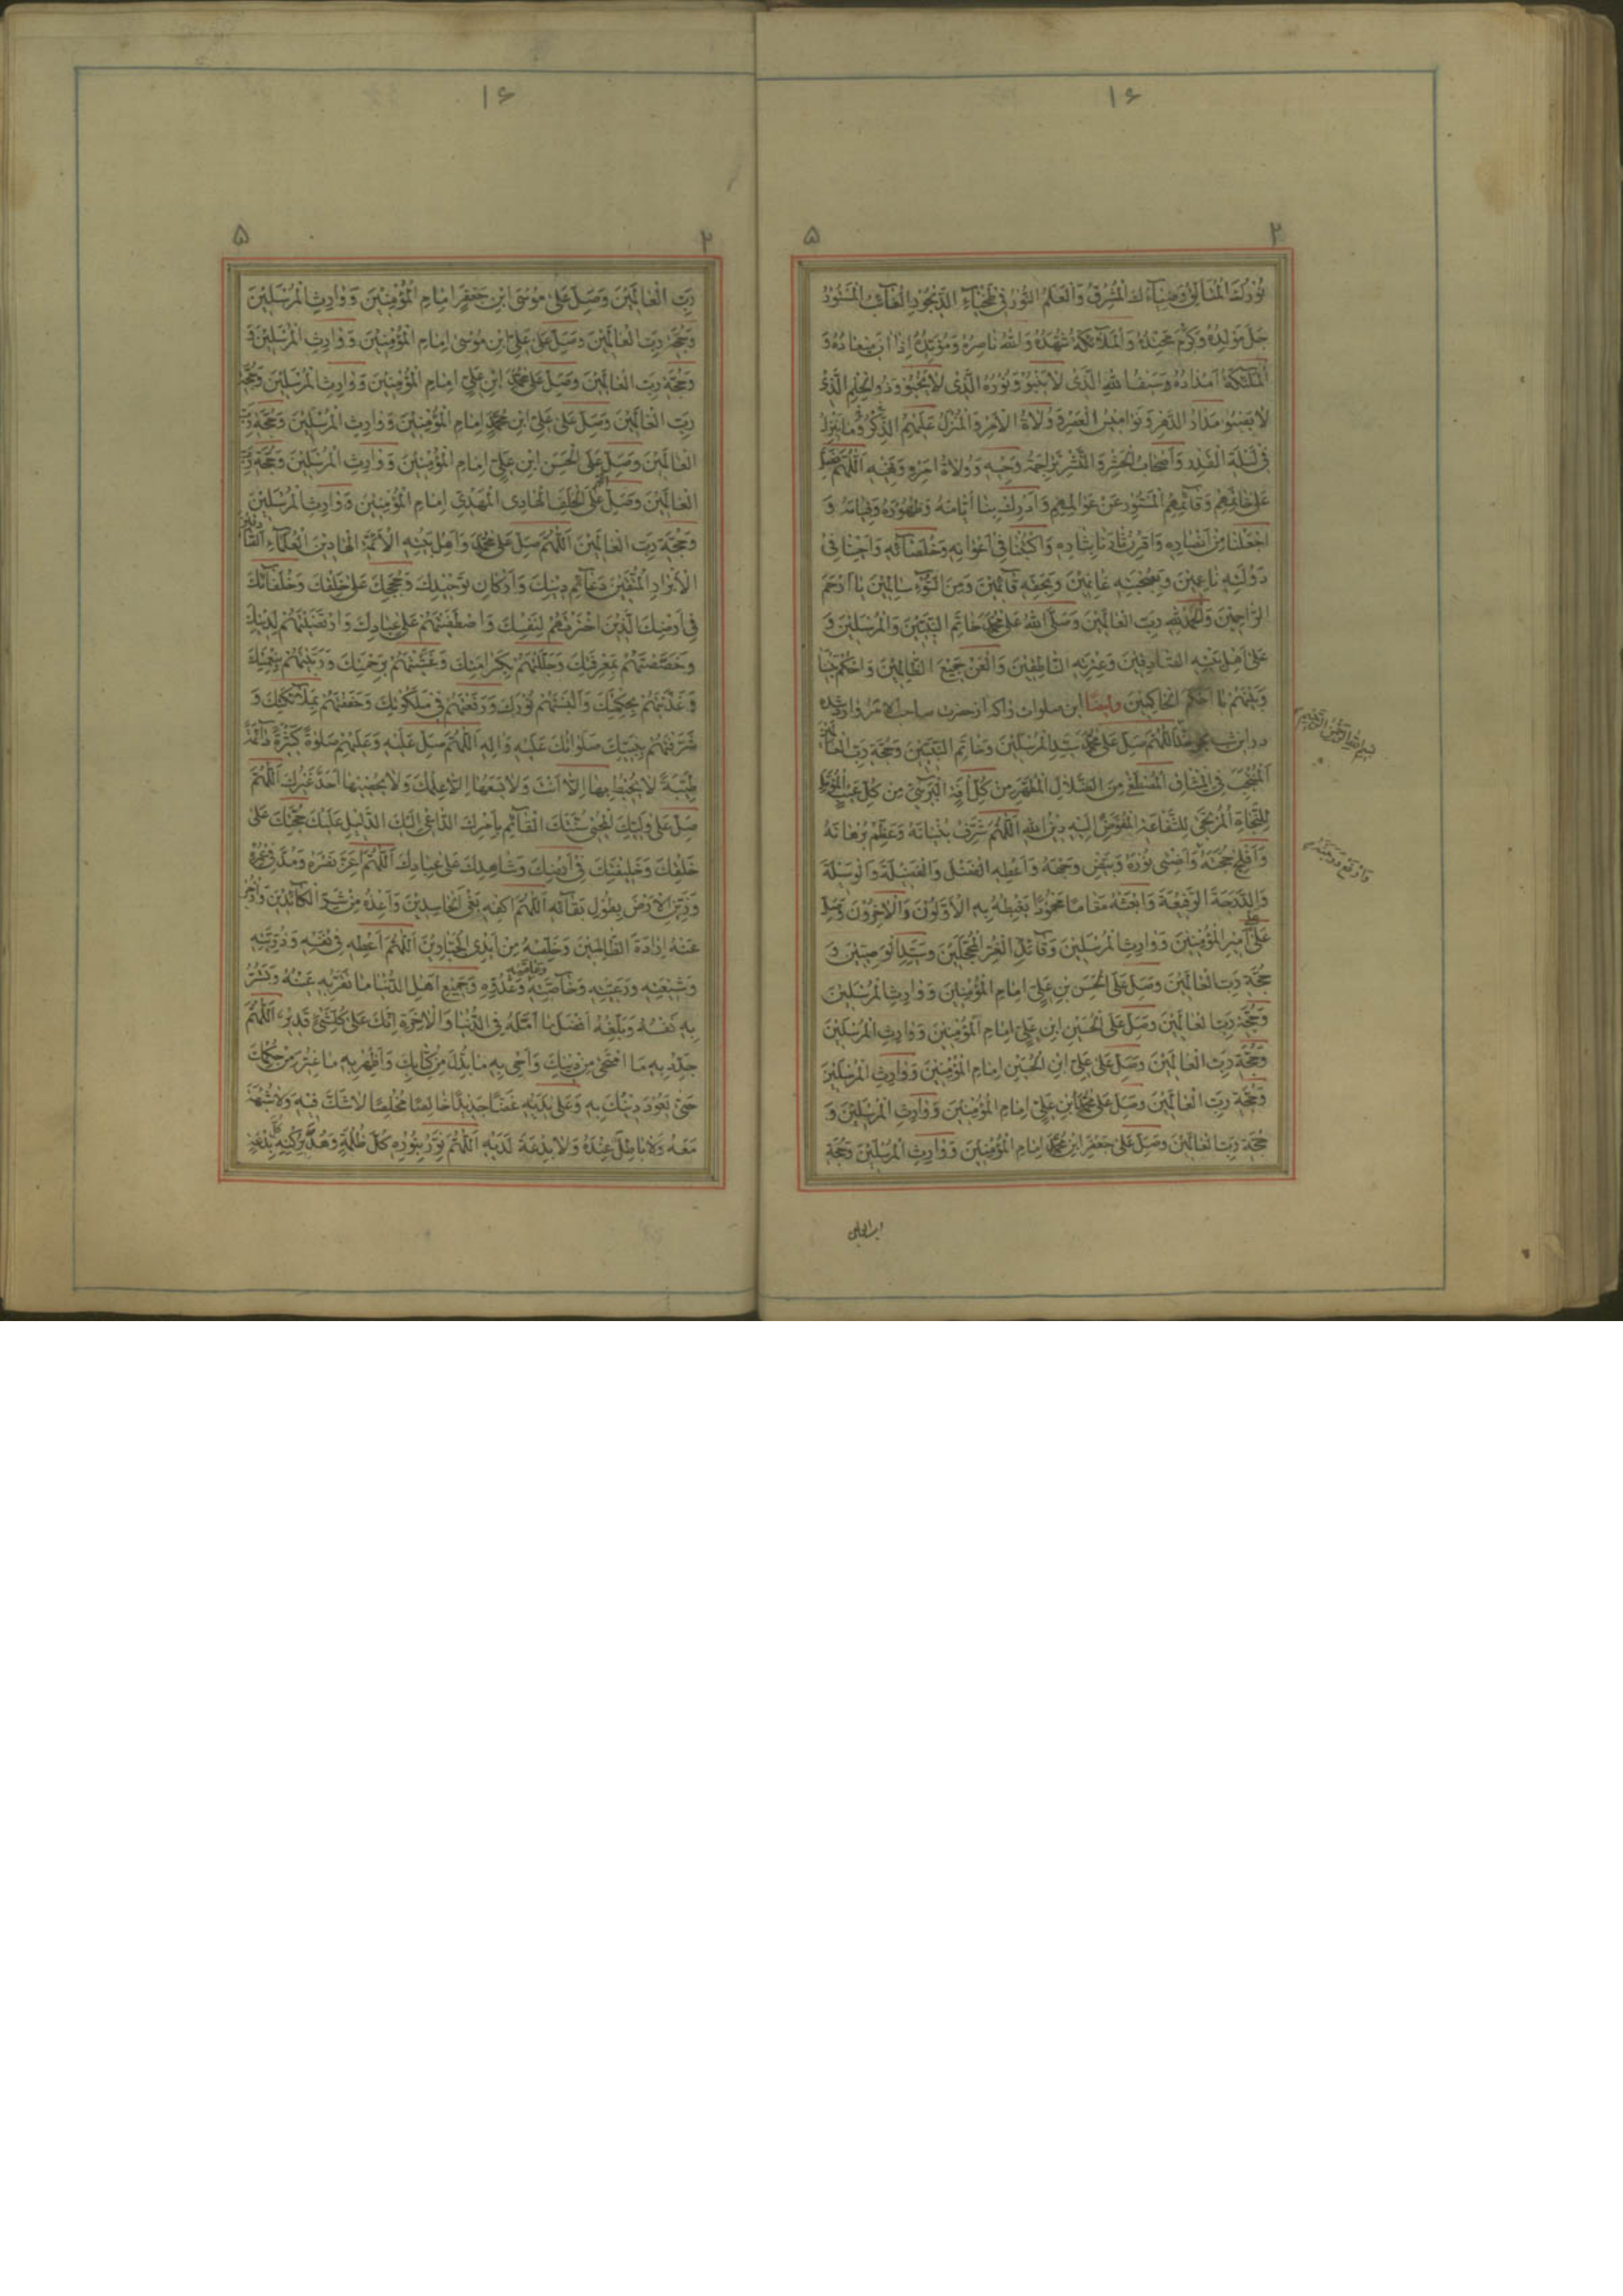 ۱۶
۲ ۵
نُورُكَ الْمُتَأَلِّقُ وَضِيَآءُكَ الْمُشْرِقُ وَالْعَلَمُ النُّورُ فِي طَخْيَآءِ الدَّيْجُورِ الْغَآئِبُ الْمَسْتُورُ
جَلَّ مَوْلِدُهُ وَكَرُمَ مَحْتِدُهُ وَالْمَلَآئِكَةُ شُهَّدُهُ وَاللّٰهُ نَاصِرُهُ وَمُؤَيِّدُهُ إِذَا آنَ مِيعَادُهُ وَ
الْمَلَئِكَةُ اَمْدَادُهُ وَسَيْفُ اللّٰهِ الَّذِي لَا يَنْبُو وَنُورُهُ الَّذِي لَا يَخْبُو وَذُو الْحِلْمِ الَّذِي
لَا يَصْبُو مَدَارُ الدَّهْرِ وَنَوَامِيسُ الْعَصْرِ وَوُلَاةُ الْاَمْرِ وَالْمُنَزَّلُ عَلَيْهِمُ الذِّكْرُ وَمَا يَنْزِلُ
فِي لَيْلَةِ الْقَدْرِ وَاَصْحَابُ الْحَشْرِ وَالنَّشْرِ تَرَاجِمَةُ وَحْيِهِ وَوُلَاةُ اَمْرِهِ وَنَهْيِهِ اَللّٰهُمَّ فَصَلِّ
عَلَى خَاتِمِهِمْ وَقَآئِمِهِمُ الْمَسْتُورِ عَنْ عَوَالِمِهِمْ وَاَدْرِكْ بِنَا اَيَّامَهُ وَظُهُورَهُ وَقِيَامَهُ وَ
اجْعَلْنَا مِنْ اَنْصَارِهِ وَاقْرِنْ ثَارَنَا بِثَارِهِ وَاكْتُبْنَا فِي اَعْوَانِهِ وَخُلَصَآئِهِ وَاَحْيِنَا فِي
دَوْلَتِهِ نَاعِمِينَ وَبِصُحْبَتِهِ غَانِمِينَ وَبِحَقِّهِ قَآئِمِينَ وَمِنَ السُّوءِ سَالِمِينَ يَا اَرْحَمَ
الرَّاحِمِينَ وَالْحَمْدُ لِلّٰهِ رَبِّ الْعَالَمِينَ وَصَلَّى اللّٰهُ عَلَى مُحَمَّدٍ خَاتَمِ النَّبِيِّينَ وَالْمُرْسَلِينَ وَ
عَلَى اَهْلِ بَيْتِهِ الصَّادِقِينَ وَعِتْرَتِهِ النَّاطِقِينَ وَالْعَنْ جَمِيعَ الظَّالِمِينَ وَاحْكُمْ بَيْنَنَا
وَبَيْنَهُمْ يَا اَحْكَمَ الْحَاكِمِينَ وايضًا ابن صلوات را كه از حضرت صاحب الامر وارد شده
در اين شب اَللّٰهُمَّ صَلِّ عَلَى مُحَمَّدٍ سَيِّدِ الْمُرْسَلِينَ وَخَاتَمِ النَّبِيِّينَ وَحُجَّةِ رَبِّ الْعَالَمِينَ
اَلْمُنْتَجَبِ فِي الْمِيثَاقِ الْمُصْطَفٰى مِنَ الضِّلَالِ الْمُطَهَّرِ مِنْ كُلِّ اٰفَةٍ الْبَرِئِ مِنْ كُلِّ عَيْبٍ الْمُؤَمَّلِ
لِلنَّجَاةِ الْمُرْتَجٰى لِلشَّفَاعَةِ الْمُفَوَّضِ اِلَيْهِ دِينُ اللّٰهِ اَللّٰهُمَّ شَرِّفْ بُنْيَانَهُ وَعَظِّمْ بُرْهَانَهُ
وَاَفْلِجْ حُجَّتَهُ وَاَضِئْ نُورَهُ وَبَيِّضْ وَجْهَهُ وَاَعْطِهِ الْفَضْلَ وَالْفَضِيلَةَ وَالْوَسِيلَةَ
وَالدَّرَجَةَ الرَّفِيعَةَ وَابْعَثْهُ مَقَامًا مَحْمُودًا يَغْبِطُهُ بِهِ الْاَوَّلُونَ وَالْاٰخِرُونَ وَصَلِّ
عَلَى اَمِيرِ الْمُؤْمِنِينَ وَوَارِثِ الْمُرْسَلِينَ وَقَآئِدِ الْغُرِّ الْمُحَجَّلِينَ وَسَيِّدِ الْوَصِيِّينَ وَ
حُجَّةِ رَبِّ الْعَالَمِينَ وَصَلِّ عَلَى الْحَسَنِ بْنِ عَلِيٍّ اِمَامِ الْمُؤْمِنِينَ وَوَارِثِ الْمُرْسَلِينَ
وَحُجَّةِ رَبِّ الْعَالَمِينَ وَصَلِّ عَلَى الْحُسَيْنِ ابْنِ عَلِيٍّ اِمَامِ الْمُؤْمِنِينَ وَوَارِثِ الْمُرْسَلِينَ
وَحُجَّةِ رَبِّ الْعَالَمِينَ وَصَلِّ عَلَى عَلِيِّ ابْنِ الْحُسَيْنِ اِمَامِ الْمُؤْمِنِينَ وَوَارِثِ الْمُرْسَلِينَ
وَحُجَّةِ رَبِّ الْعَالَمِينَ وَصَلِّ عَلَى مُحَمَّدِ ابْنِ عَلِيٍّ اِمَامِ الْمُؤْمِنِينَ وَوَارِثِ الْمُرْسَلِينَ وَ
حُجَّةِ رَبِّ الْعَالَمِينَ وَصَلِّ عَلَى جَعْفَرِ ابْنِ مُحَمَّدٍ اِمَامِ الْمُؤْمِنِينَ وَوَارِثِ الْمُرْسَلِينَ وَحُجَّةِ
رب العالمين
۱۶
۲ ۵
رَبِّ الْعَالَمِينَ وَصَلِّ عَلَى مُوسَى ابْنِ جَعْفَرٍ اِمَامِ الْمُؤْمِنِينَ وَوَارِثِ الْمُرْسَلِينَ
وَحُجَّةِ رَبِّ الْعَالَمِينَ وَصَلِّ عَلَى عَلِيِّ ابْنِ مُوسٰى اِمَامِ الْمُؤْمِنِينَ وَوَارِثِ الْمُرْسَلِينَ
وَحُجَّةِ رَبِّ الْعَالَمِينَ وَصَلِّ عَلَى مُحَمَّدِ ابْنِ عَلِيٍّ اِمَامِ الْمُؤْمِنِينَ وَوَارِثِ الْمُرْسَلِينَ وَحُجَّةِ
رَبِّ الْعَالَمِينَ وَصَلِّ عَلَى عَلِيِّ ابْنِ مُحَمَّدٍ اِمَامِ الْمُؤْمِنِينَ وَوَارِثِ الْمُرْسَلِينَ وَحُجَّةِ رَبِّ
الْعَالَمِينَ وَصَلِّ عَلَى الْحَسَنِ ابْنِ عَلِيٍّ اِمَامِ الْمُؤْمِنِينَ وَوَارِثِ الْمُرْسَلِينَ وَحُجَّةِ رَبِّ
الْعَالَمِينَ وَصَلِّ عَلَى الْخَلَفِ الْهَادِي الْمَهْدِيِّ اِمَامِ الْمُؤْمِنِينَ وَوَارِثِ الْمُرْسَلِينَ
وَحُجَّةِ رَبِّ الْعَالَمِينَ اَللّٰهُمَّ صَلِّ عَلَى مُحَمَّدٍ وَاَهْلِ بَيْتِهِ الْاَئِمَّةِ الْهَادِينَ الْعُلَمَآءِ الصَّادِقِينَ
الْاَبْرَارِ الْمُتَّقِينَ دَعَآئِمِ دِينِكَ وَاَرْكَانِ تَوْحِيدِكَ وَحُجَجِكَ عَلَى خَلْقِكَ وَخُلَفَآئِكَ
فِي اَرْضِكَ الَّذِينَ اخْتَرْتَهُمْ لِنَفْسِكَ وَاصْطَفَيْتَهُمْ عَلَى عِبَادِكَ وَارْتَضَيْتَهُمْ لِدِينِكَ
وَخَصَصْتَهُمْ بِمَعْرِفَتِكَ وَجَلَّلْتَهُمْ بِكَرَامَتِكَ وَغَشَّيْتَهُمْ بِرَحْمَتِكَ وَرَبَّيْتَهُمْ بِنِعْمَتِكَ
وَغَذَّيْتَهُمْ بِحِكْمَتِكَ وَاَلْبَسْتَهُمْ نُورَكَ وَرَفَعْتَهُمْ فِي مَلَكُوتِكَ وَحَفَفْتَهُمْ بِمَلَآئِكَتِكَ وَ
شَرَّفْتَهُمْ بِنَبِيِّكَ صَلَوَاتُكَ عَلَيْهِ وَاٰلِهِ اَللّٰهُمَّ صَلِّ عَلَيْهِ وَعَلَيْهِمْ صَلٰوةً كَثِيرَةً دَآئِمَةً
طَيِّبَةً لَا يُحِيطُ بِهَا اِلَّا اَنْتَ وَلَا يَسَعُهَا اِلَّا عِلْمُكَ وَلَا يُحْصِيهَا اَحَدٌ غَيْرُكَ اَللّٰهُمَّ
صَلِّ عَلَى وَلِيِّكَ الْمُحْيِي سُنَّتَكَ الْقَآئِمِ بِاَمْرِكَ الدَّاعِي اِلَيْكَ الدَّلِيلِ عَلَيْكَ حُجَّتِكَ عَلَى
خَلْقِكَ وَخَلِيفَتِكَ فِي اَرْضِكَ وَشَاهِدِكَ عَلَى عِبَادِكَ اَللّٰهُمَّ اَعِزَّ نَصْرَهُ وَمُدَّ فِي عُمُرِهِ
وَزَيِّنِ الْاَرْضَ بِطُولِ بَقَآئِهِ اَللّٰهُمَّ اكْفِهِ بَغْيَ الْحَاسِدِينَ وَاَعِذْهُ مِنْ شَرِّ الْكَآئِدِينَ وَازْجُرْ
عَنْهُ اِرَادَةَ الظَّالِمِينَ وَخَلِّصْهُ مِنْ اَيْدِي الْجَبَّارِينَ اَللّٰهُمَّ اَعْطِهِ فِي نَفْسِهِ وَذُرِّيَّتِهِ
وَشِيعَتِهِ وَرَعِيَّتِهِ وَخَاصَّتِهِ وَعَامَّتِهِ وَعَدُوِّهِ وَجَمِيعِ اَهْلِ الدُّنْيَا مَا تُقِرُّ بِهِ عَيْنَهُ وَتَسُرُّ
بِهِ نَفْسَهُ وَبَلِّغْهُ اَفْضَلَ مَا اَمَّلَهُ فِي الدُّنْيَا وَالْاٰخِرَةِ اِنَّكَ عَلَى كُلِّ شَيْءٍ قَدِيرٌ اَللّٰهُمَّ
جَدِّدْ بِهِ مَا امْتَحٰى مِنْ دِينِكَ وَاَحْيِ بِهِ مَا بُدِّلَ مِنْ كِتَابِكَ وَاَظْهِرْ بِهِ مَا غُيِّرَ مِنْ حُكْمِكَ
حَتّٰى يَعُودَ دِينُكَ بِهِ وَعَلَى يَدَيْهِ غَضًّا جَدِيدًا خَالِصًا مُخْلَصًا لَا شَكَّ فِيهِ وَلَا شُبْهَةَ
مَعَهُ وَلَا بَاطِلَ عِنْدَهُ وَلَا بِدْعَةَ لَدَيْهِ اَللّٰهُمَّ نَوِّرْ بِنُورِهِ كُلَّ ظُلْمَةٍ وَهُدَّ بِرُكْنِهِ كُلَّ بِدْعَةٍ